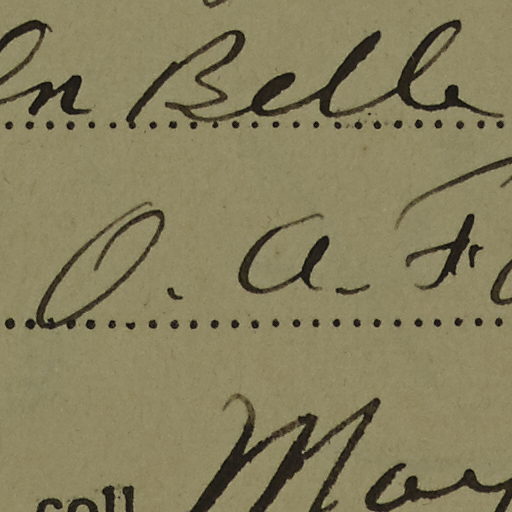 n Belle
O. A. F
coll. May